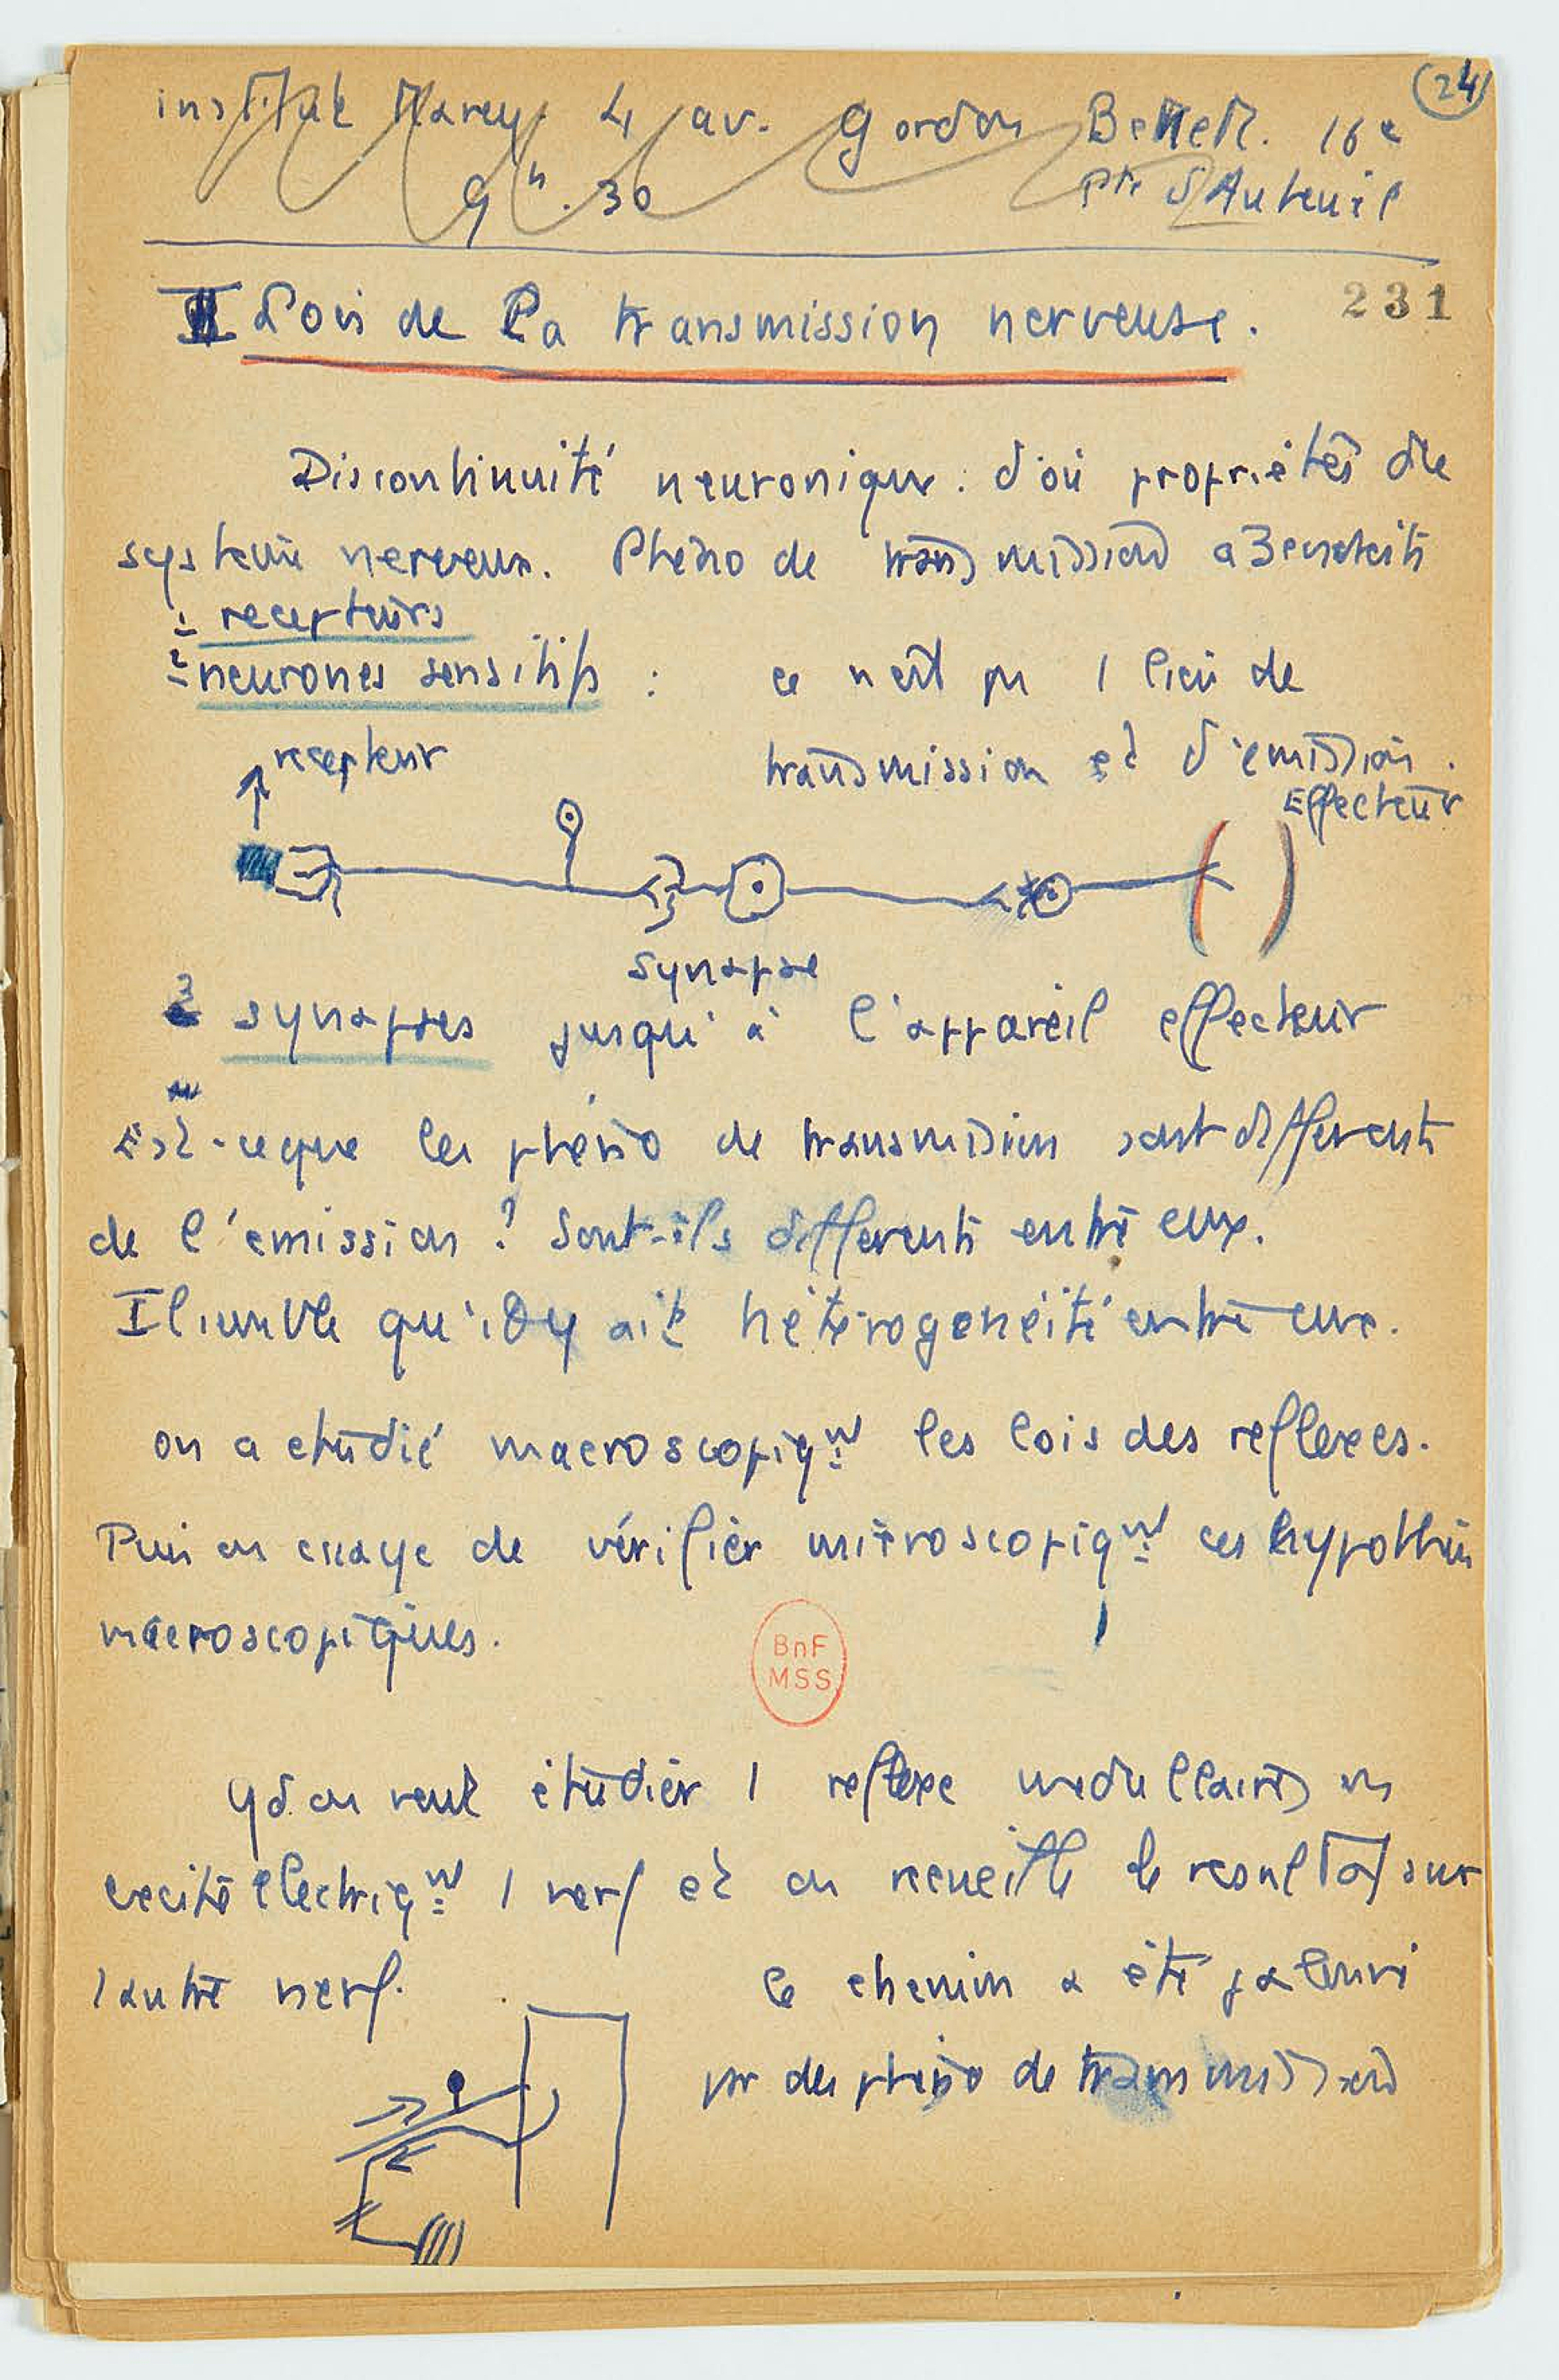 24
institut Marey. 4 av. Gordon Benett. 16e
9h.30 Pte d'Auteuil
231
II Lois de la transmission nerveuse.
Discontinuité neuronique : d'où propriétés du
système nerveux. Phéno de transmission a 3 endroits
1 recepteurs
2 neurones sensitifs : ce n'est pas 1 lieu de
transmission et d'émission.
recepteur
Effecteur
synapse
3 synapses jusqu'à l'appareil effecteur
Est-ce que les phéno de transmission sont differents
de l'emission ? Sont-ils differents entre eux.
Il semble qu'il y ait hétérogénéité entre eux.
on a etudié macroscopiqnt les lois des reflexes.
Puis on essaye de vérifier microscopiqnt ces hypothèses
macroscopiques.
BnF
MSS
qd on veut étudier 1 reflexe medullaire on
excite electriqnt 1 nerf et on recueille le resultat sur
l'autre nerf. le chemin a été
par des phéno de transmission